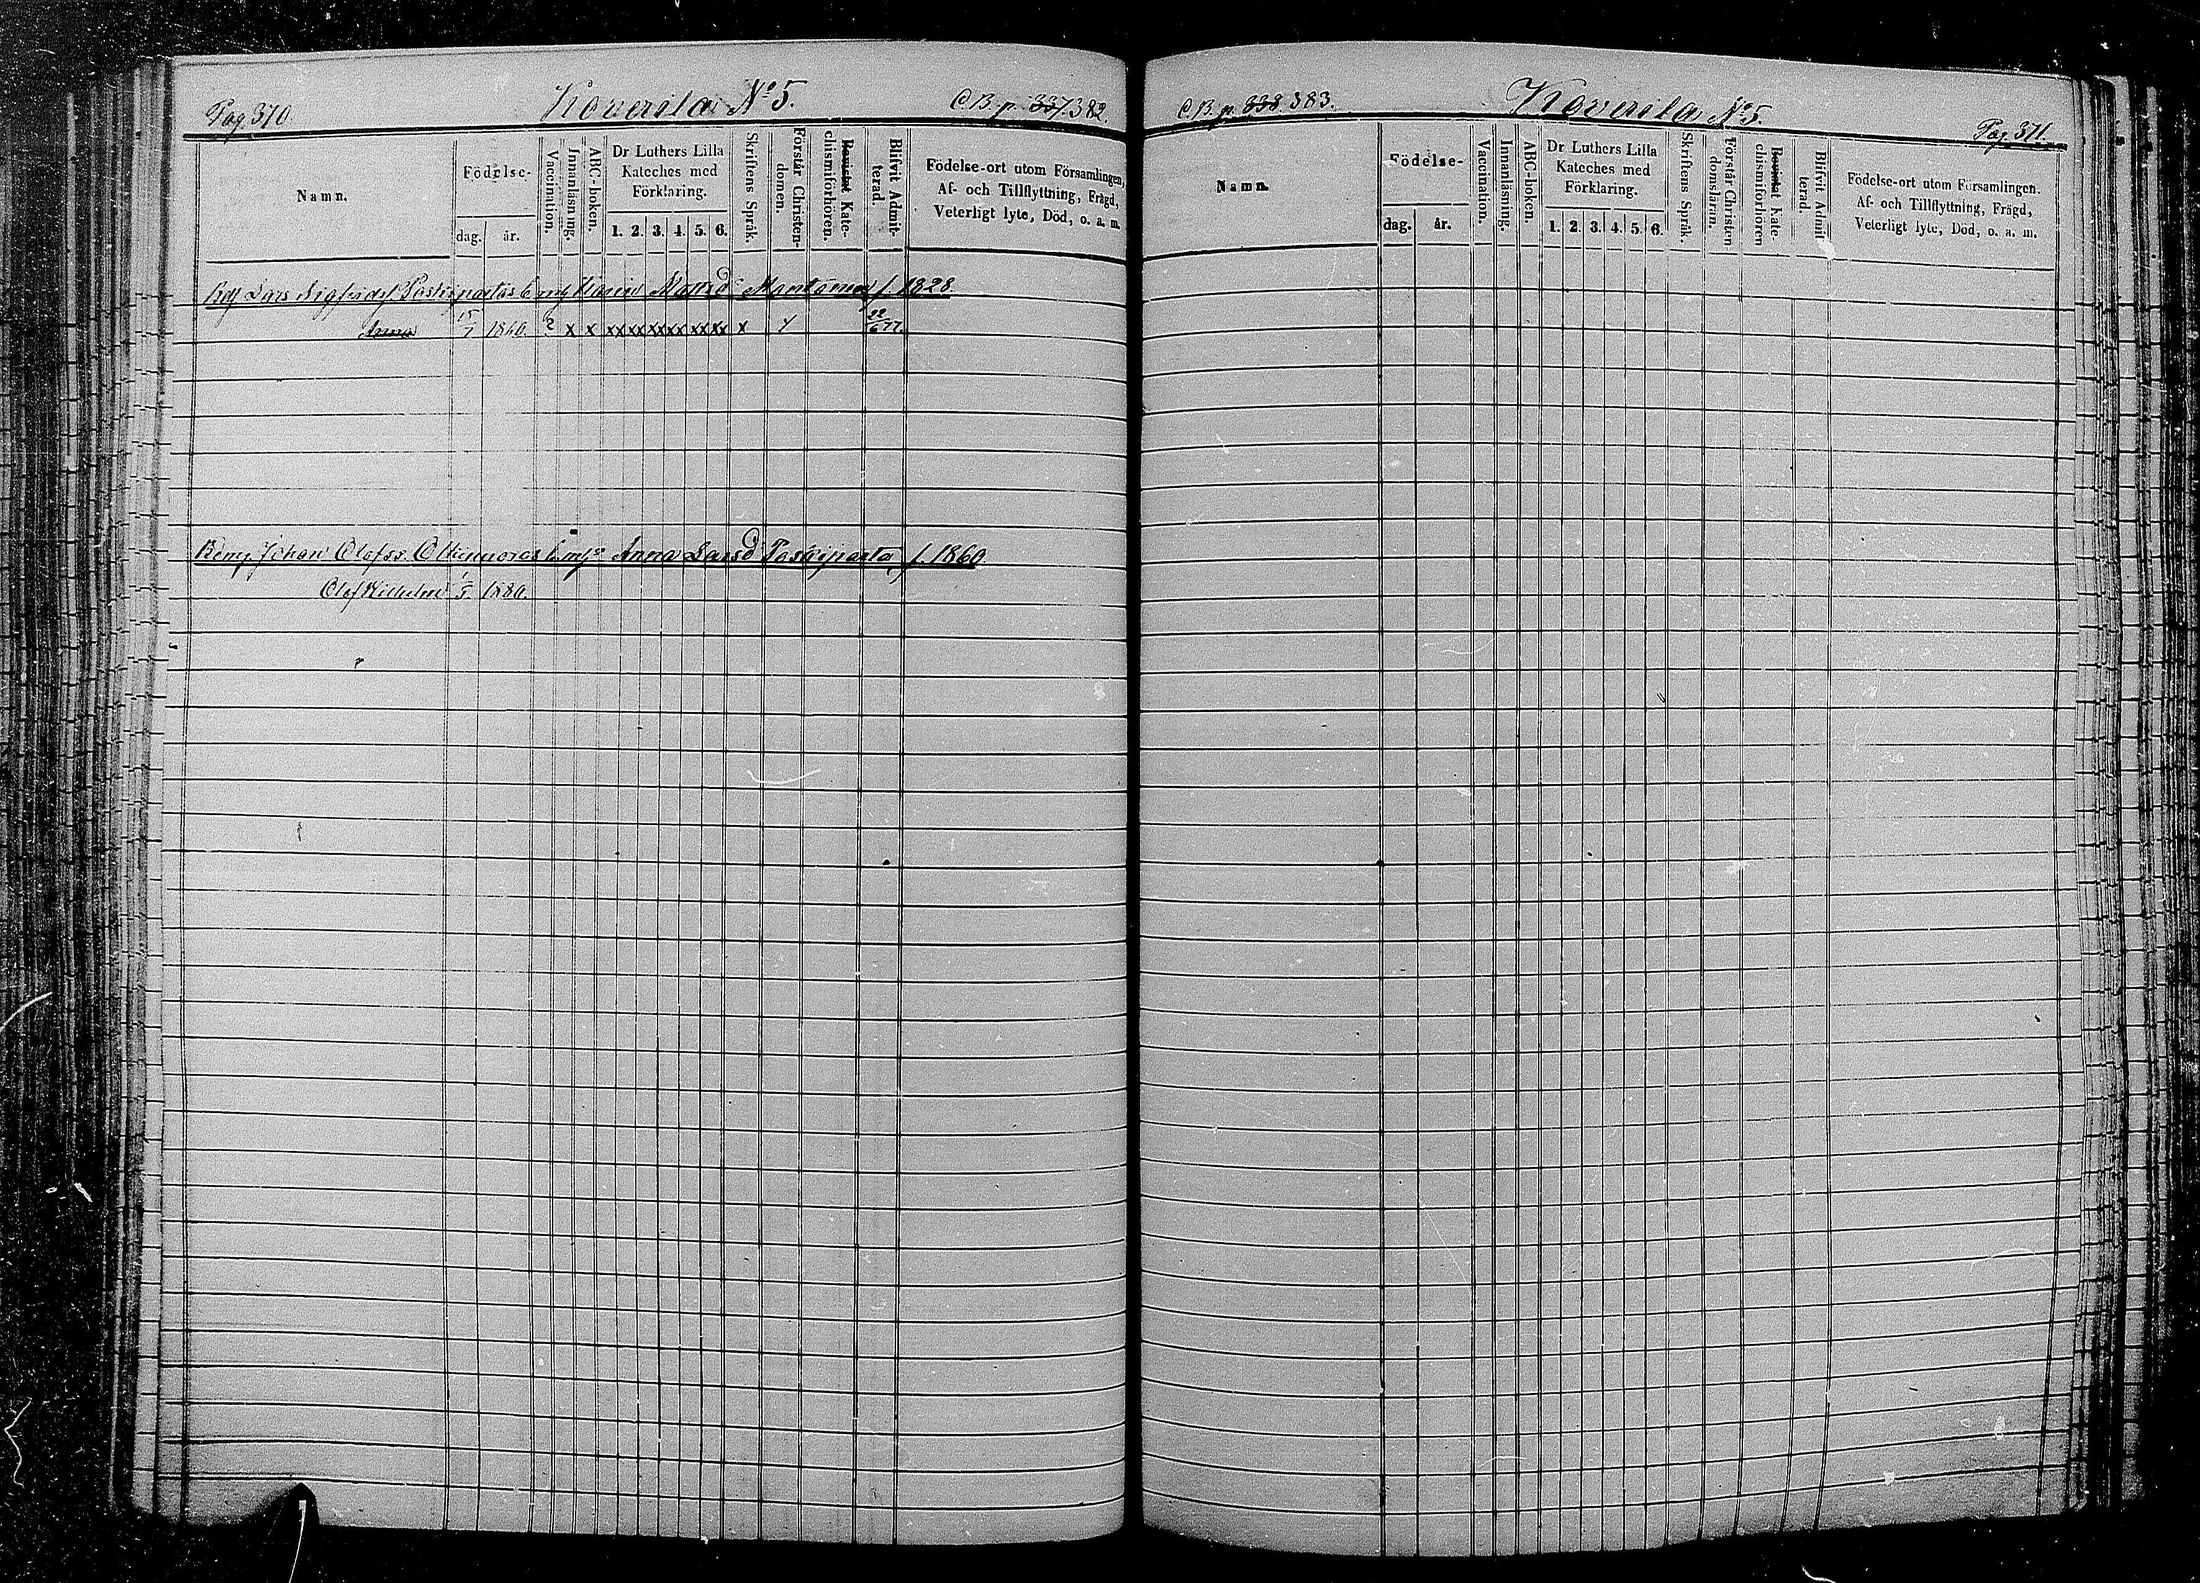 Pag. 370. Koverila No 5. C.B. p. 337. 382.
Namn.
Födelse-
dag. år.
Vaccination.
Innanläsning.
ABC-boken.
Dr Luthers Lilla Kateches med Förklaring.
1. 2. 3. 4. 5. 6.
Skriftens Språk.
Förstår Christendomen.
Bevistat Katechismiförhören.
Blifvit Admitterad
Födelse-ort utom Församlingen, Af- och Tillflyttning, Frägd, Veterligt lyte, Död, o. a. m.
Lars Sigfridsf Karin Matsd f. 1828
Anna 15/1 1860. x x xx xx xx xx xx xx x 22/6 77.
Johan Olofss. Anna Larsd f. 1860.
Olof Wilhelm 1/5 1880.
C.B. p. 338. 383. Koverila No 5. Pag. 371.
Namn.
Födelse-
dag. år.
Vaccination.
Innanläsning.
ABC-boken.
Dr Luthers Lilla Kateches med Förklaring.
1. 2. 3. 4. 5. 6.
Skriftens Språk.
Förstår Christendomsläran.
Bevistat Katechismiförhören
Blifvit Admitterad.
Födelse-ort utom Församlingen. Af- och Tillflyttning, Frägd, Veterligt lyte, Död, o. a. m.